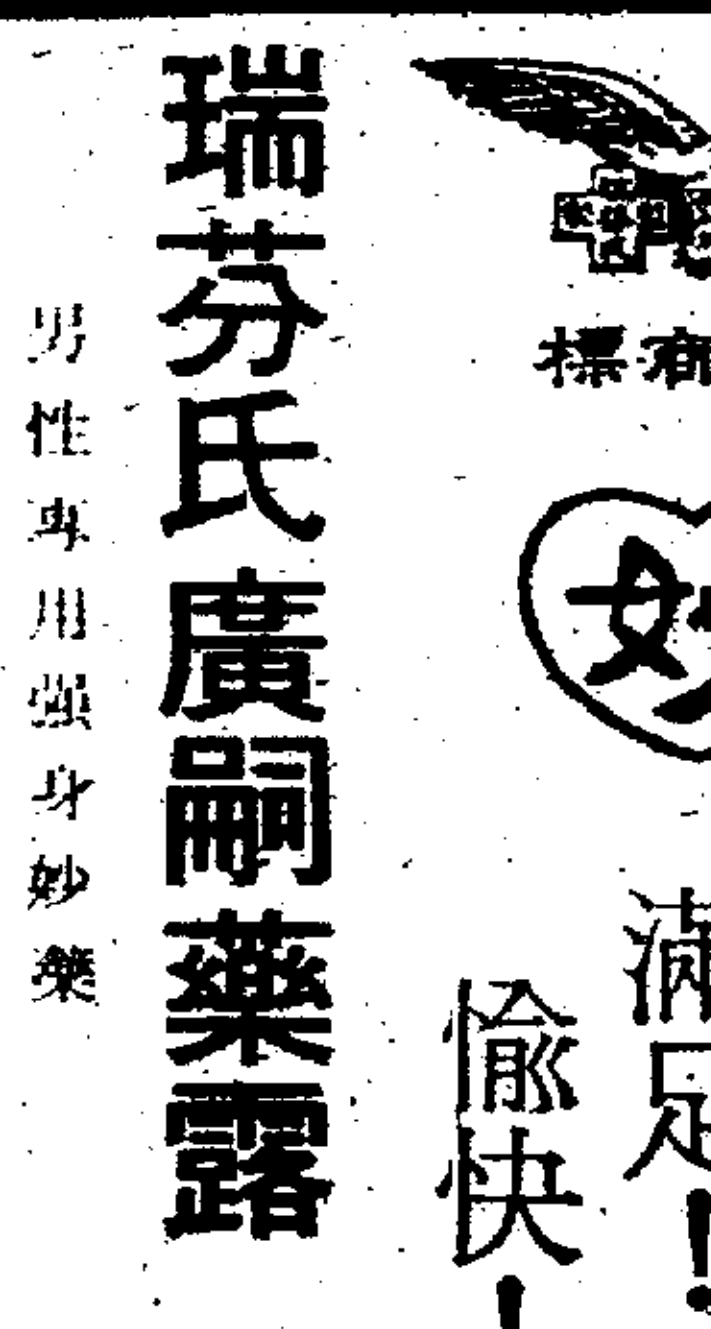 商標
妙
滿足!
愉快!
瑞芬氏廣嗣藥露
男性專用強身妙藥